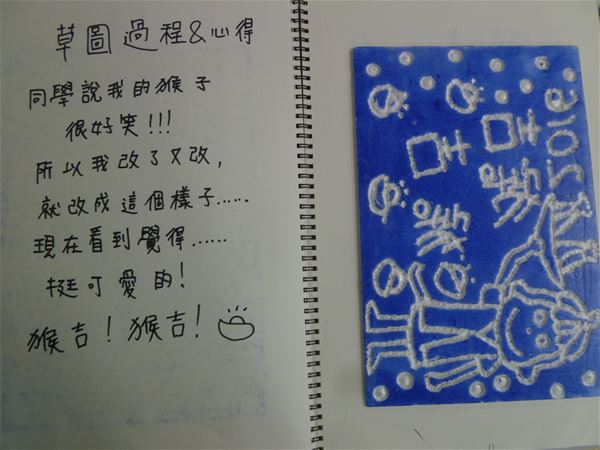 草圖過程&心得
同學說我的猴子
很好笑!!!
所以我改了又改,
就改成這個樣子......
現在看到覺得......
挺可愛的!
猴吉!猴吉!
2016
猴吉
猴吉